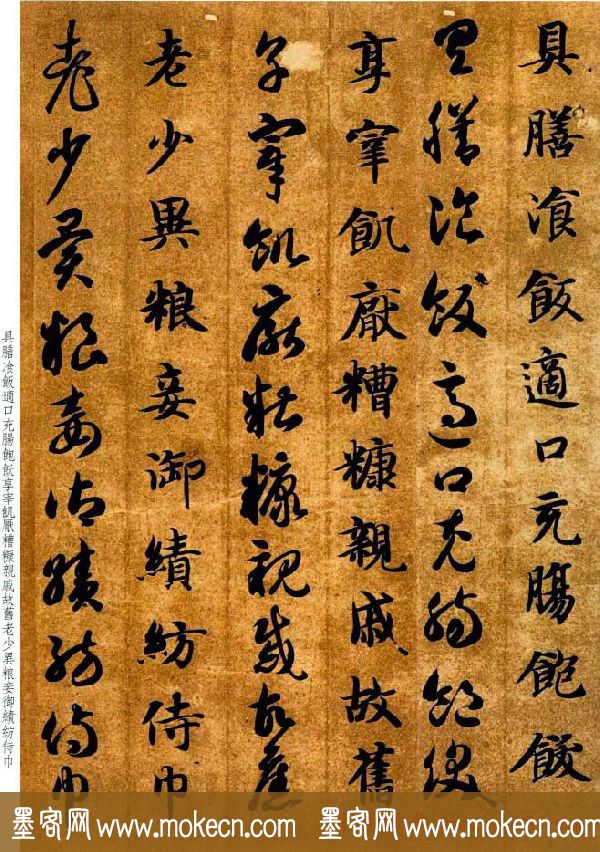 具膳飡飯適口充腸飽飫
具膳飡飯適口充腸飽飫
享宰飢厭糟糠親戚故舊
享宰飢厭糟糠親戚故舊
老少異粮妾御績紡侍巾
老少異粮妾御績紡侍巾
具膳飡飯適口充腸飽飫享宰飢厭糟糠親戚故舊老少異粮妾御績紡侍巾
墨客网 www.mokecn.com 墨客网 www.mokecn.com